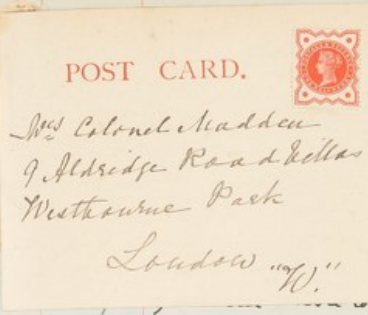 POST CARD.
Mrs Colonel Madden
9 Aldridge Road Villas
Westbourne Park
London "W."